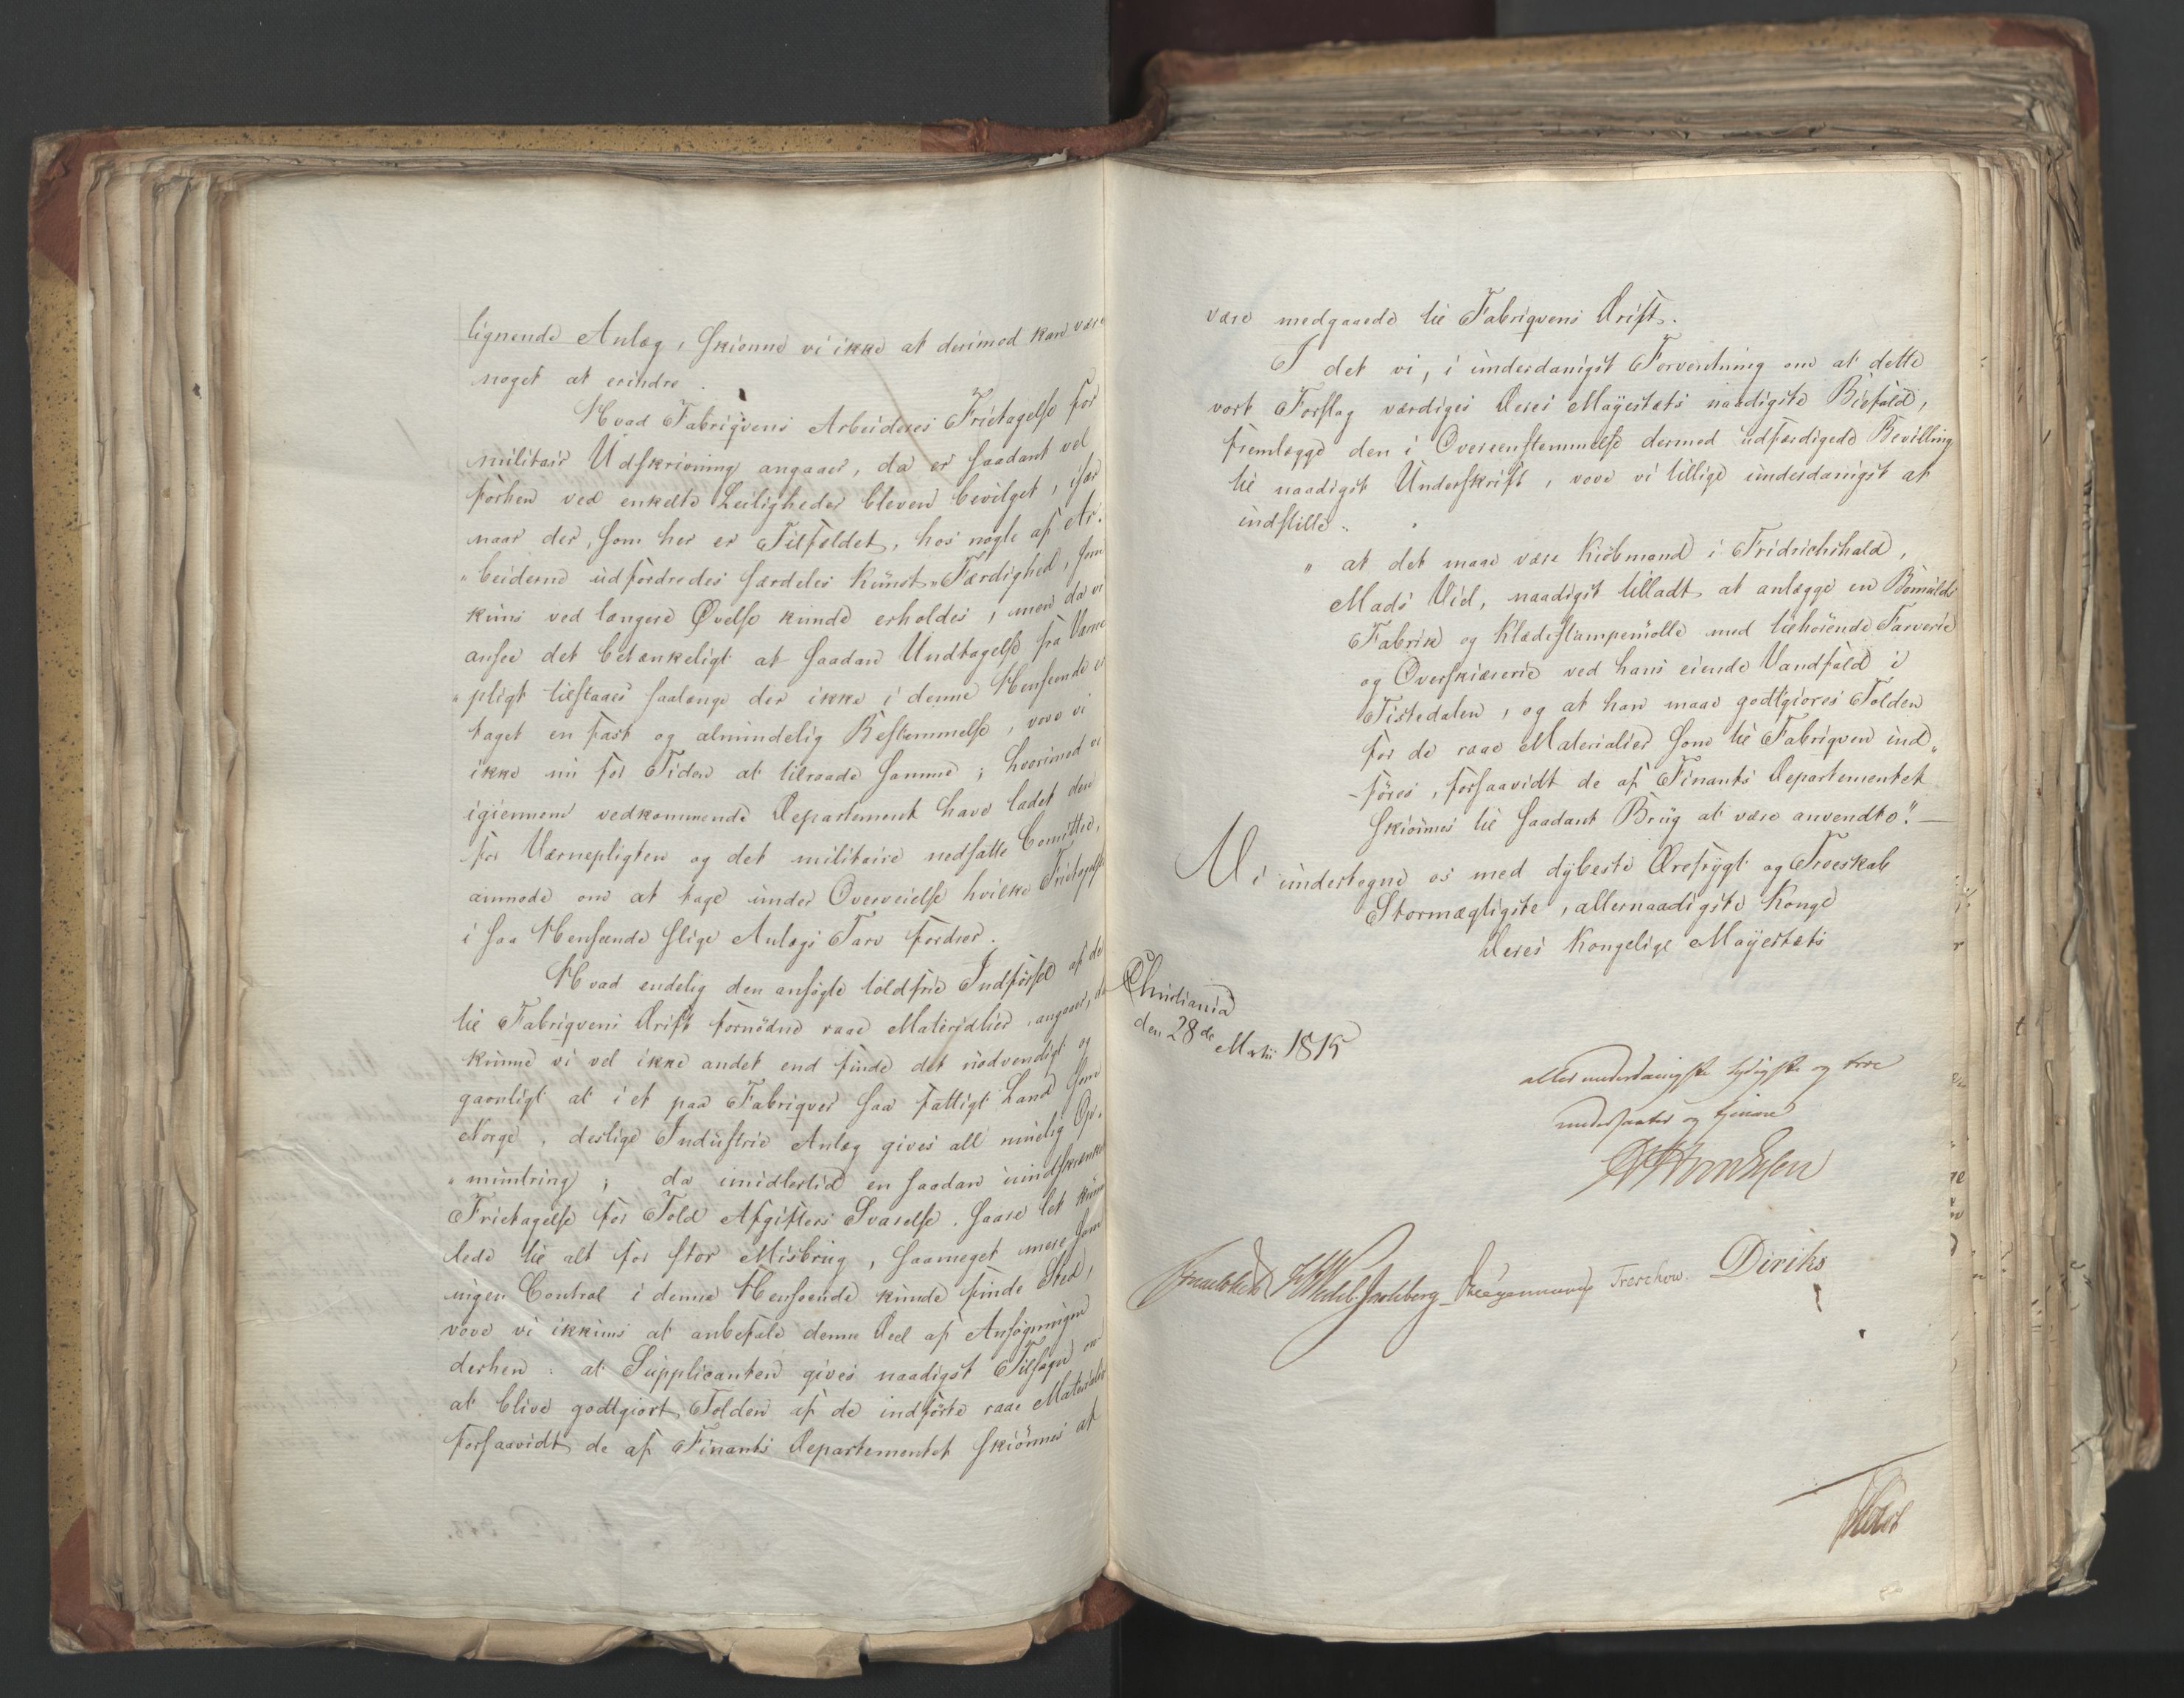 lignende Anlæg, skiønne vi ikke at derimod kan være
noget at erindre.
Hvad Fabriqvens Arbeideres Fritagelse for
militair Udskrivning angaaer, da er saadant vel
forhen ved enkelte Leiligheder bleven bevilget, især
naar der, som her er Tilfældet, hos nogle af Ar-
"beiderne udfordredes særdeles Kunst-Færdighed, som
kuns ved længere Øvelse kunde erholdes; men da vi
ansee det betænkeligt at saadan Undtagelse fra Værne
"pligt tilstaaes saalænge der ikke i denne Henseende er
taget en fast og almindelig Bestemmelse, vove vi
ikke nu for Tiden at tilraade samme; hvorimod vi
igiennem vedkommende Departement have ladet den
for Værnepligten og det militaire nedsatte Comittee,
anmode om at tage under Overveielse hvilke Fritagelse
i saa Henseende slige Anlægs Tarv fordrer.
Hvad endelig den ansøgte toldfrie Indførsel af de
til Fabriqvens Drift fornødne raae Materialier angaaer, da
kunne vi vel ikke andet end finde det nødvendigt og
gavnligt at i et paa Fabriqver saa fattigt Land som
Norge, deslige Industrie Anlæg gives all muelig Op-
"muntring; da imidlertid en saadan uindskrænket
Fritagelse for Told Afgifters Svarelse saare let kunne
lede til alt for stor Misbrug, saameget mere som
ingen Control i denne Henseende kunde finde Sted,
vove vi ikkuns at anbefale denne Deel af Ansøgningen
derhen: at Supplicanten gives naadigst Tilsagn om
at blive godtgiort Tolden af de indførte raae Materialier
forsaavidt de af Finants Departementet skiønnes at
være medgaaede til Fabriqvens Drift.
I det vi, i underdanigst Forventning om at dette
vort Forslag værdiges Deres Mayestæts naadigste Biefald,
fremlægge den i Overeensstemmelse dermed udfærdigede Bevilling
til naadigst Underskrift, vove vi tillige underdanigst at
indstille:
" at det maae være Kiøbmand i Fridrichshald,
Mads Vid, naadigst tilladt at anlægge en Bomulds
Fabrik og Klædestampemølle med tilhørende Farverie
og Overskiærerie ved hans eiende Vandfald i
Tistedalen, og at han maae godtgiøres Tolden
for de raae Materialier som til Fabriqven ind"
-føres, forsaavidt de af Finants Departementet
skiønnes til saadant Brug at være anvendte."
Vi undertegne os med dybeste Ærefrygt og Troeskab
Stormægtigste, allernaadigste Konge
Deres Kongelige Mayestæts
Christiania
den 28de Martii 1815
allerunderdanigste lydigste og troe
undersaatter og tjenere
Wedel Jarlsberg
Treschow.
Diriks